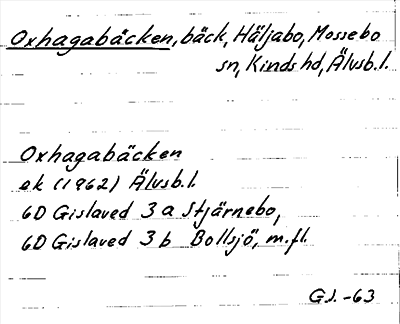 Oxhagabäcken, bäck, Häljabo, Mossebo
sn, Kinds hd, Älvsb.l.
Oxhagabäcken
ek (1962) Älvsb.l.
6D Gislaved 3a Stjärnebo,
6D Gislaved 3b Bollsjö, m.fl.
G.J. -63